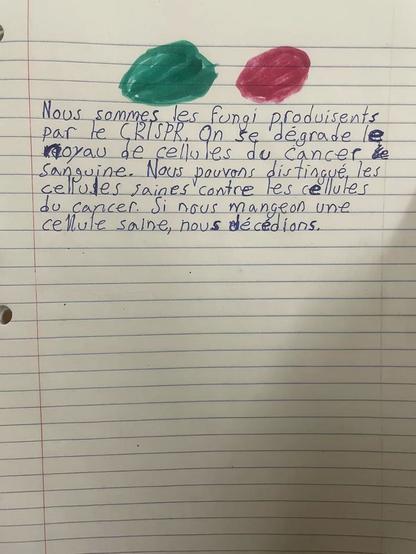 Nous sommes les fungi produisents
par le CRISPR. On se dégrade le
noyau de cellules du cancer de
sanguine. Nous pouvons distingué, les
cellules saines contre les cellules
du cancer. Si nous mangeon une
cellule saine, nous décédions.